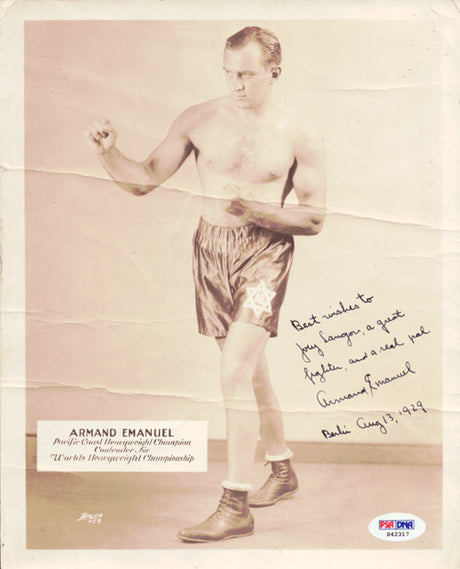 Best wishes to
Joey Sangor, a great
fighter, and a real pal
Armand Emanuel
Berlin Aug 13, 1929
ARMAND EMANUEL
Pacific Coast Heavyweight Champion
Contender for
Worlds Heavyweight Championship
PSA DNA
S42317